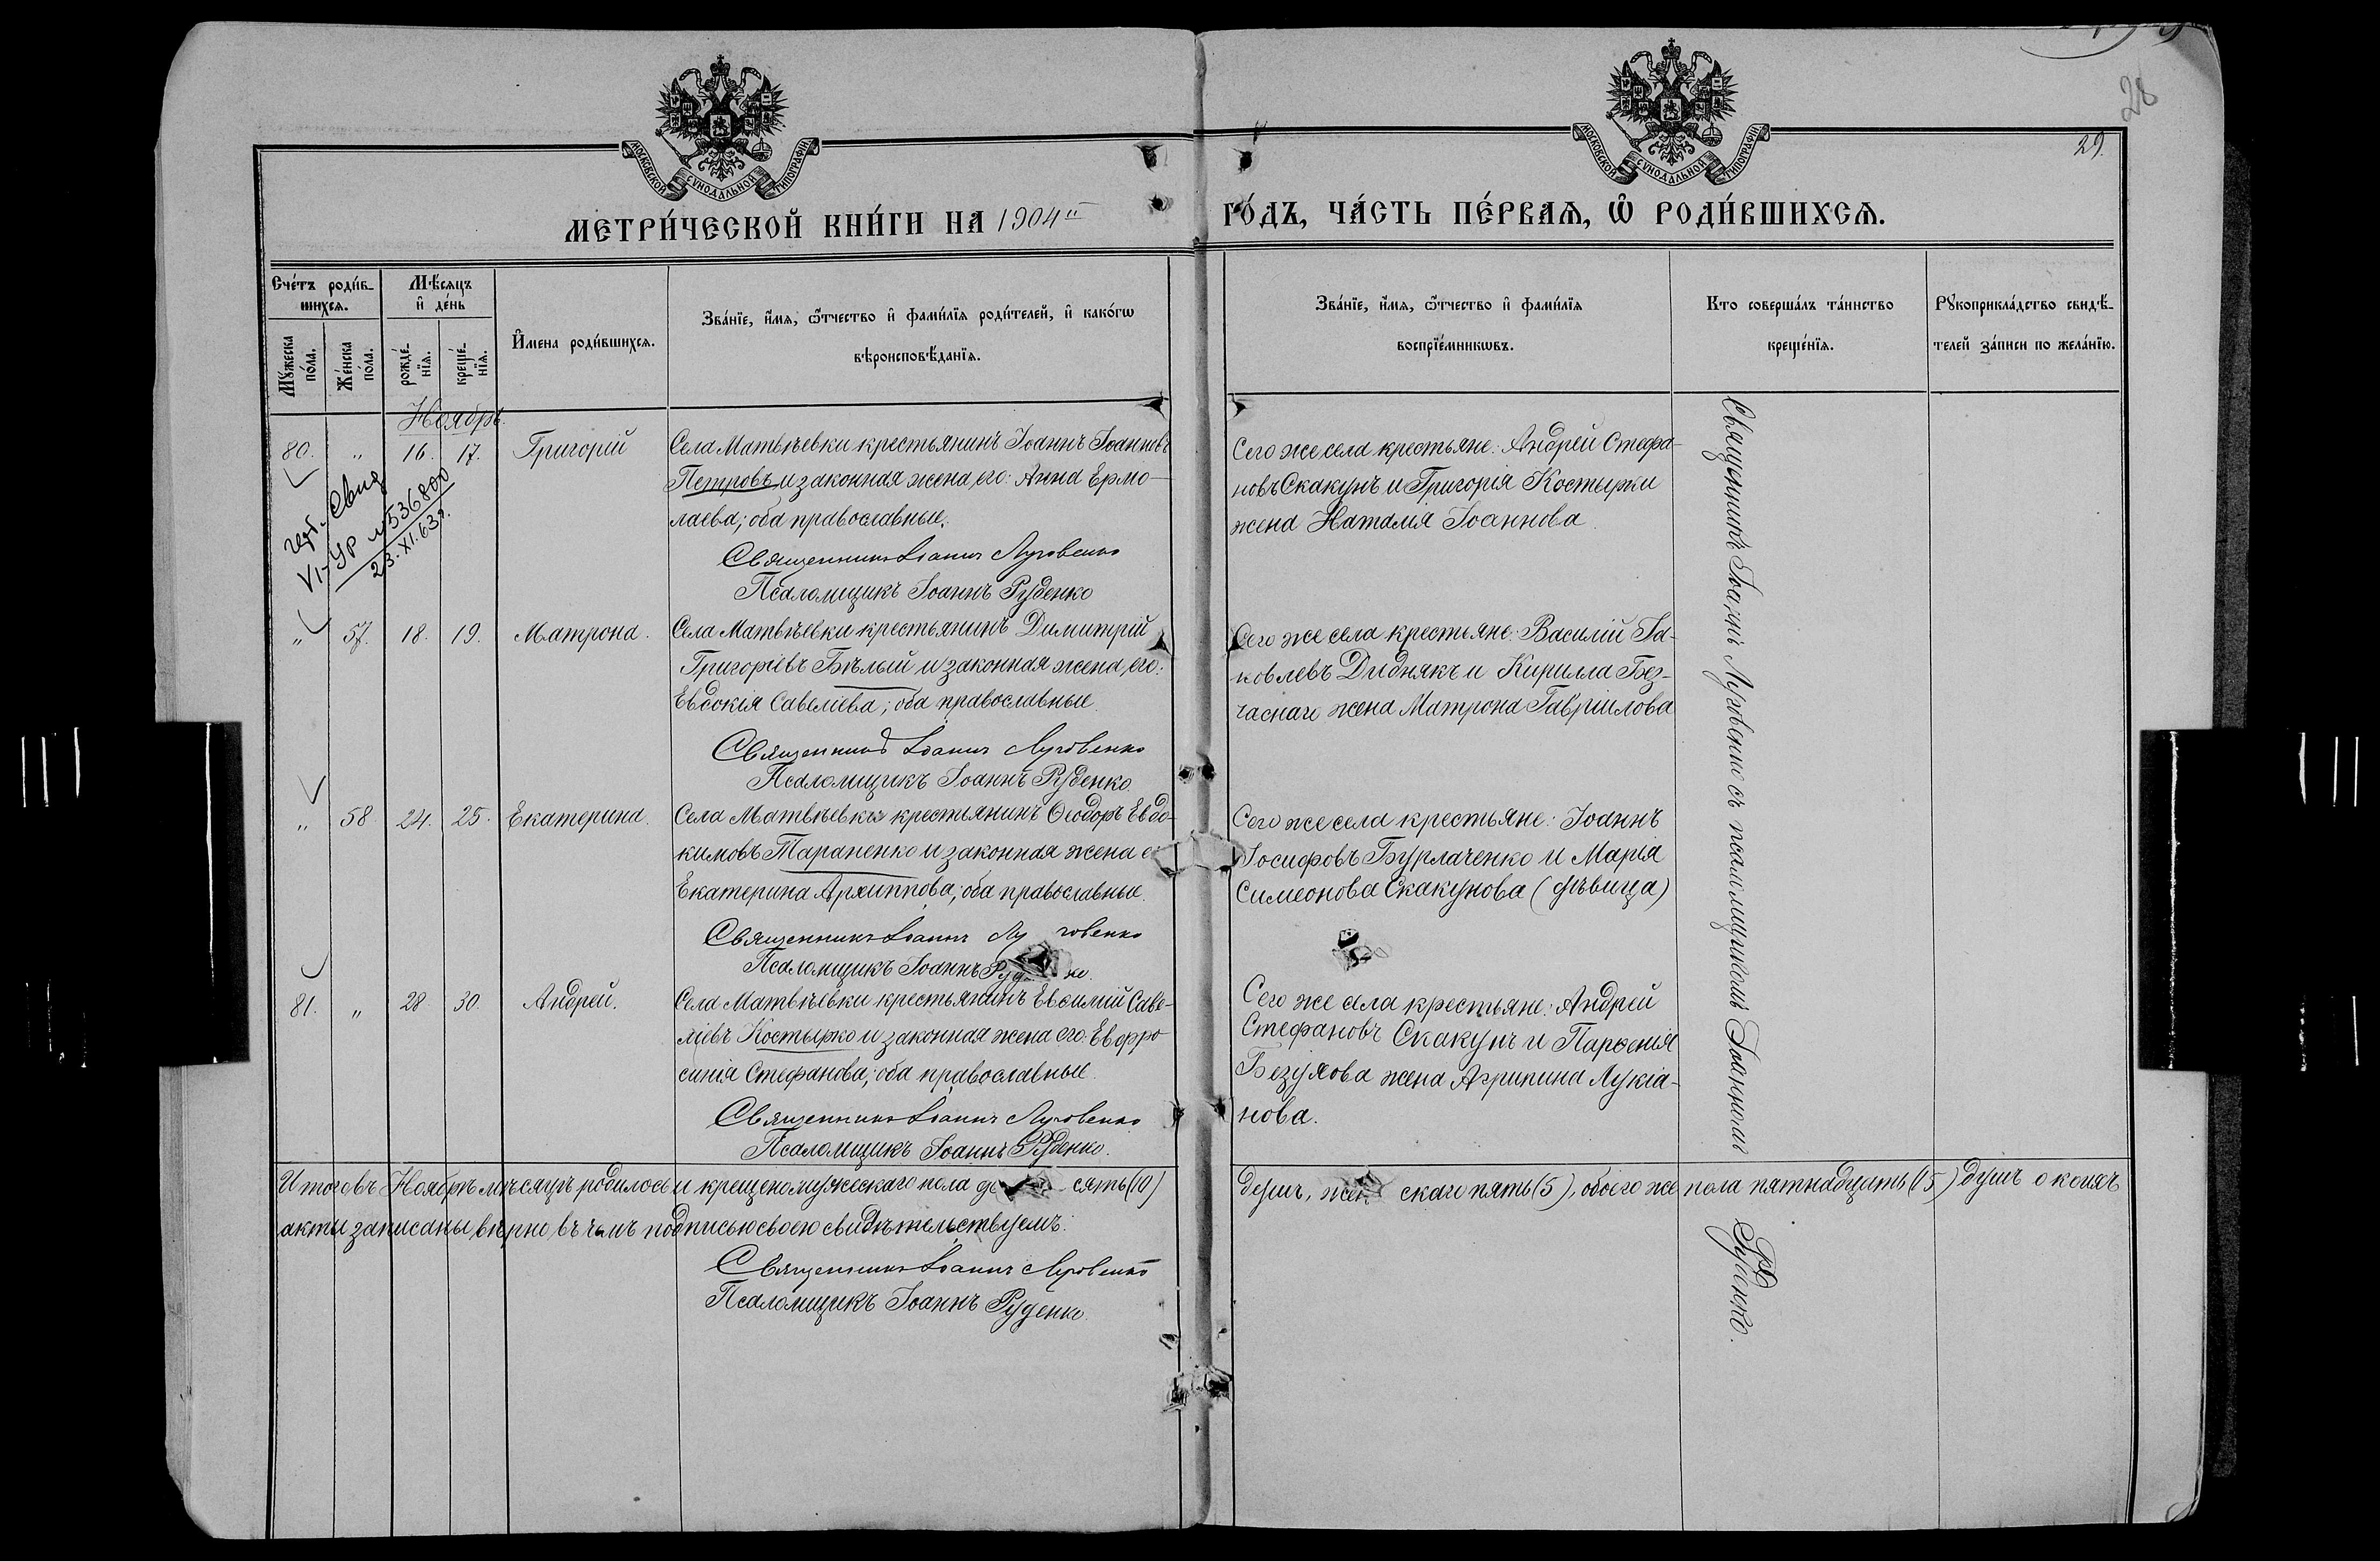 28
29.
МОСКОВСКОЙ СѴНОДАЛЬНОЙ ТИПОГРАФІИ
МОСКОВСКОЙ СѴНОДАЛЬНОЙ ТИПОГРАФІИ
МЕТРИ́ЧЕСКОЙ КНИ́ГИ НА 1904й ГО́ДЪ, ЧА́СТЬ ПЕ́РВАѦ, Ѽ РОДИ́ВШИХСѦ.
Сче́тъ роди́в-
шихсѧ.
Мꙋ́жеска
по́ла.
Же́нска
по́ла.
Мѣ́сѧцъ
и҆ де́нь
рожде́-
нїѧ.
креще́-
нїѧ.
И҆мена роди́вшихсѧ.
Зва́нїе, и҆́мѧ, ѻ҆́тчество и҆ фами́лїѧ роди́телей, и҆ како́гѡ
вѣроисповѣ́данїѧ.
Зва́нїе, и҆́мѧ, ѻ҆́тчество и҆ фами́лїѧ
воспрїе́мникѡвъ.
Кто соверша́лъ та́инство
креще́нїѧ.
Рꙋкоприкла́дство свидѣ́-
телей за́писи по жела́нїю.
Ноябрь.
80. " 16. 17. Григорій
Села Матвѣевки крестьянинъ Іоаннъ Іоанновъ
Петровъ и законная жена его: Анна Ермо-
лаева; оба православные.
Священникъ Іоаннъ Луговенко
Псаломщикъ Іоаннъ Руденко
Сего же села крестьяне: Андрей Стефа-
новъ Скакунъ и Григорія Костырки
жена Наталія Іоаннова.
Свид
VI-УР № 536800
23.XI.63г.
" 57. 18. 19. Матрона.
Села Матвѣевки крестьянинъ Димитрій
Григоріевъ Бѣлый и законная жена его:
Евдокія Савеліева; оба православные.
Священникъ Іоаннъ Луговенко
Псаломщикъ Іоаннъ Руденко.
Сего же села крестьяне: Василій Іа-
ковлевъ Диднякъ и Кирилла Без-
часнаго жена Матрона Гавріилова
" 58 24. 25. Екатерина.
Села Матвѣевки крестьянинъ Ѳеодоръ Евдо-
кимовъ Тараненко и законная жена е
Екатерина Архиппова; оба православные.
Священникъ Іоаннъ Луговенко
Псаломщикъ Іоаннъ Руд ко.
Сего же села крестьяне: Іоаннъ
Іосифовъ Бурлаченко и Марія
Симеонова Скакунова (дѣвица)
81. " 28 30. Андрей.
Села Матвѣевки крестьянинъ Евѳимій Саве-
ліевъ Костырко и законная жена его: Евфро
синія Стефанова; оба православные.
Священникъ Іоаннъ Луговенко
Псаломщикъ Іоаннъ Руденко.
Сего же села крестьяне: Андрей
Стефановъ Скакунъ и Парѳенія
Безухова жена Агрипина Лукіа-
нова.
Священникъ Іоаннъ Луговенко съ псаломщикомъ Іоанномъ
Руденко.
Итого въ Ноябрѣ мѣсяцѣ родилось и крещено мужескаго пола де сять (10) душъ, жен скаго пять (5), обоего же пола пятнадцать (15) душъ о коихъ
акты записаны вѣрно въ чемъ подписью своею свидѣтельствуемъ.
Священникъ Іоаннъ Луговенко
Псаломщикъ Іоаннъ Руденко.